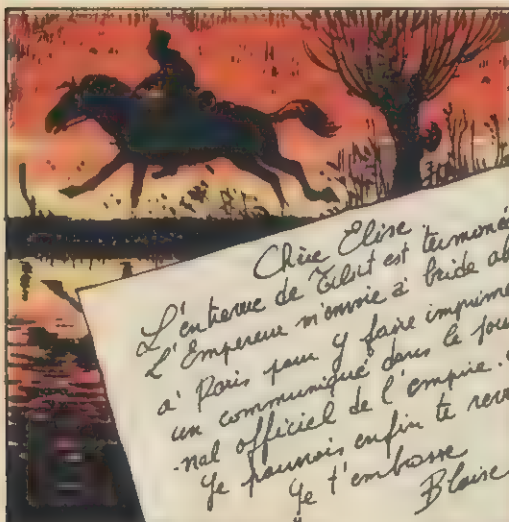 Chère Elise
L'entrevue de Tilsit est terminée
L'Empereur m'envoie à bride
à Paris pour y faire
un communiqué dans le
-nal officiel de l'empire.
Je pourrais enfin te
Je t'embrasse
Blaise